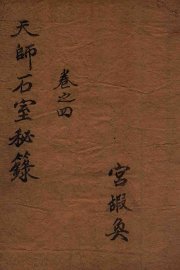 天師石室秘籙
卷之四
宮嘏奐